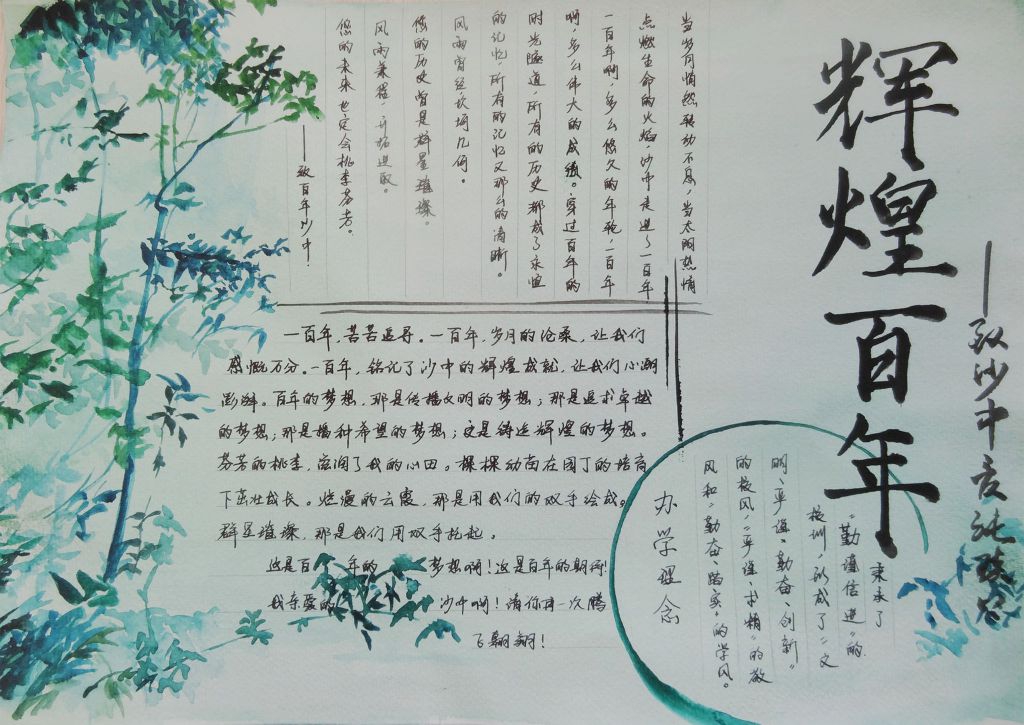 辉煌百年
——致沙中
当岁月悄然转动不息,当太阳热情
点燃生命的火焰,沙中走进了一百年
一百年啊,多么悠久的年轮,一百年
啊,多么伟大的成绩。穿过百年的
时光隧道,所有的历史都成了永恒
的记忆,所有的记忆又那么的清晰。
风雨曾经坎坷几何。
您的历史曾是群星璀璨。
风雨兼程,开拓进取。
您的未来也定会桃李芬芳。
——致百年沙中!
一百年,苦苦追寻。一百年,岁月的沧桑,让我们
感慨万分。一百年,铭记了沙中的辉煌成就,让我们心潮
澎湃。百年的梦想,那是传播文明的梦想;那是追求卓越
的梦想;那是播种希望的梦想;这是铸造辉煌的梦想。
芬芳的桃李,滋润了我的心田。棵棵幼苗在园丁的培育
下茁壮成长。烂漫的云霞,那是用我们的双手绘成。
群星璀璨,那是我们用双手托起。
这是百年的梦想啊!这是百年的期待!
我亲爱的沙中啊!请你再一次腾
飞翱翔!
秉承了
“勤谨信进”的
校训,形成了“文
明、严谨、勤奋、创新”
的校风,“严谨、求精”的教
风和“勤奋、踏实”的学风。
办学理念